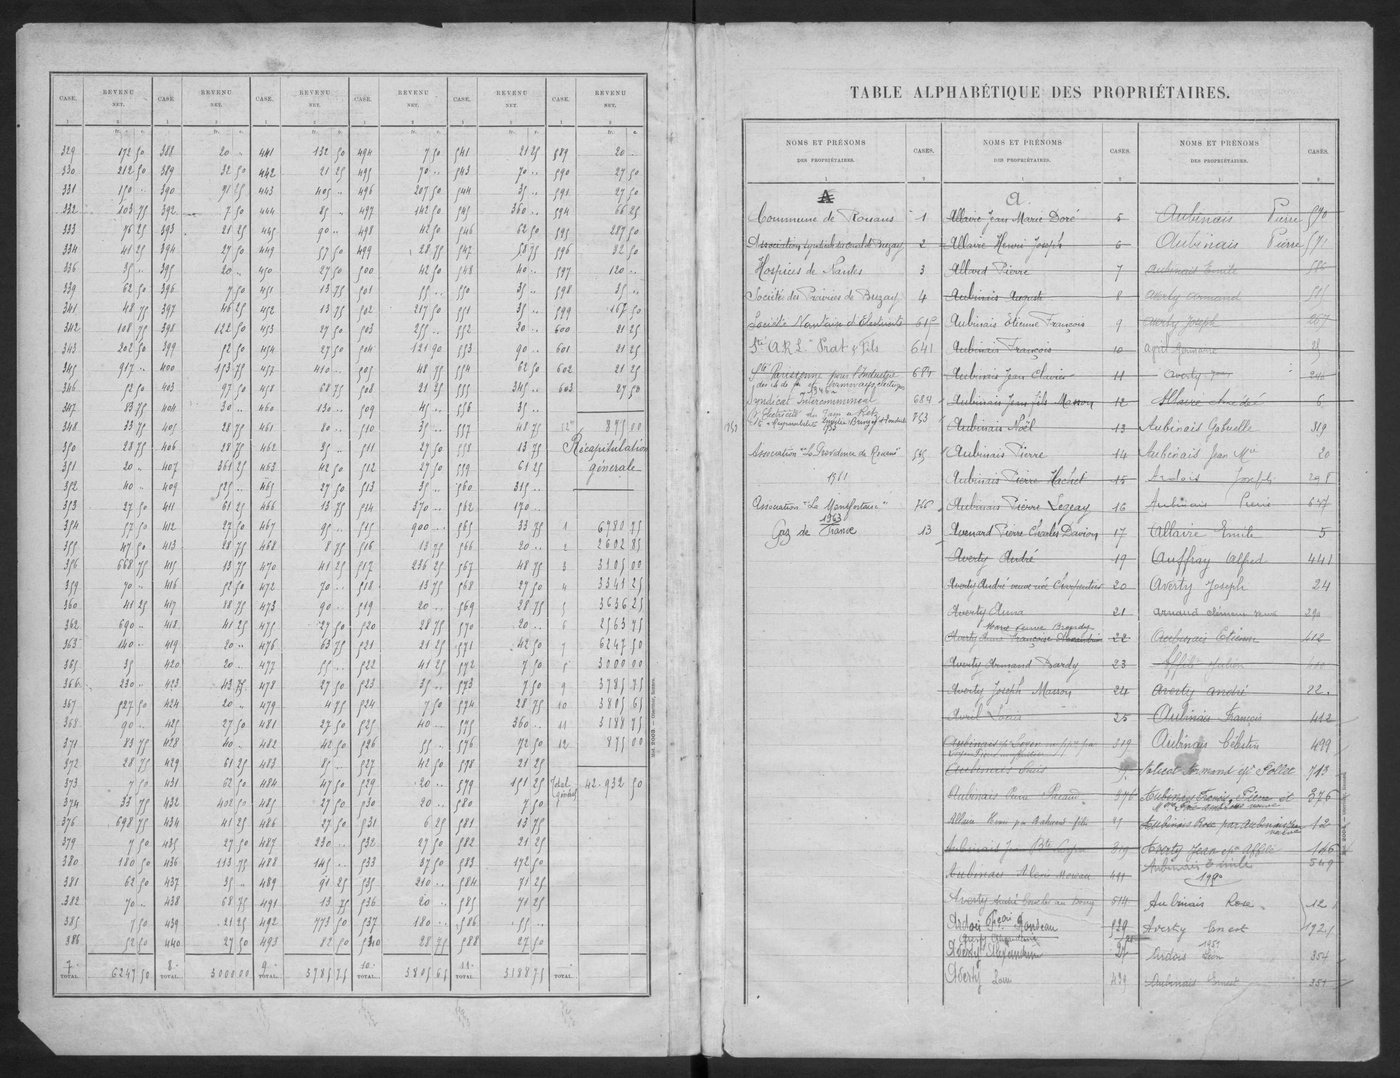 CASE. REVENU NET. CASE. REVENU NET. CASE. REVENU NET. CASE. REVENU NET. CASE. REVENU NET. CASE. REVENU NET.
329 172 50 388 20 .. 441 132 50 494 7 50 541 21 25 589 20 ..
330 212 50 389 32 50 442 21 25 495 70 .. 543 70 .. 590 27 50
331 150 .. 390 91 25 443 405 .. 496 207 50 544 35 .. 591 27 50
332 103 75 392 7 50 444 85 .. 497 142 50 545 360 .. 594 66 25
333 76 25 393 21 25 445 90 .. 498 42 50 546 62 50 595 287 50
334 41 25 394 27 50 449 57 50 499 28 75 547 58 75 596 82 50
336 35 .. 395 20 .. 450 27 50 500 42 50 548 40 .. 597 120 ..
339 62 50 396 7 50 451 13 75 501 55 .. 550 35 .. 598 35 ..
341 48 75 397 46 25 452 13 75 502 217 50 551 35 .. 599 167 50
342 108 75 398 122 50 453 27 50 503 255 .. 552 20 .. 600 21 25
343 202 50 399 52 50 454 27 50 504 121 90 553 90 .. 601 21 25
345 917 .. 400 153 75 457 410 .. 505 48 75 554 62 50 602 21 25
346 52 50 403 97 50 458 68 75 508 21 25 555 345 .. 603 27 50
347 83 75 404 30 .. 460 130 .. 509 45 .. 556 35 ..
348 33 75 405 28 75 461 80 .. 510 35 .. 557 48 75 12e 875 00
350 28 75 406 28 75 462 35 .. 511 27 50 558 13 75 Récapitulation
351 20 .. 407 361 25 463 42 50 512 27 50 559 61 25 générale
352 40 .. 409 525 .. 465 27 50 513 35 .. 560 315 ..
353 27 50 411 61 25 466 13 75 514 370 .. 562 170 ..
354 57 50 412 27 50 467 95 .. 515 900 .. 565 33 75 1 6980 75
355 47 50 413 28 75 468 8 75 516 13 75 566 20 .. 2 2602 85
356 668 75 415 13 75 470 41 25 517 236 25 567 48 75 3 3105 00
359 70 .. 416 52 50 472 70 .. 518 13 75 568 27 50 4 3341 25
360 41 25 417 18 75 473 90 .. 519 20 .. 569 28 75 5 3636 25
362 690 .. 418 41 25 475 27 50 520 28 75 570 20 .. 6 2563 75
363 140 .. 419 20 .. 476 63 75 521 21 25 571 42 50 7 6247 50
365 35 420 20 .. 477 55 .. 522 41 25 572 7 50 8 3000 00
366 230 .. 423 43 75 478 27 50 523 35 .. 573 7 50 9 3785 75
367 527 50 424 20 .. 479 4 75 524 7 50 574 28 75 10 3805 65
368 90 .. 425 27 50 481 27 50 525 40 .. 575 360 .. 11 3188 75
371 83 75 428 40 .. 482 42 50 526 55 .. 576 72 50 12 875 00
372 28 75 429 61 25 483 85 .. 527 42 50 578 21 25
373 7 50 431 62 50 484 47 50 529 20 .. 579 151 25 Total général 42.932 50
374 33 75 432 402 50 485 27 50 530 20 .. 580 7 50
376 698 75 434 41 25 486 27 50 531 6 25 581 13 75
379 7 50 435 27 50 487 230 .. 532 27 50 582 21 25
380 180 50 436 113 75 488 145 .. 533 37 50 583 172 50
381 62 50 437 35 .. 489 91 25 535 210 .. 584 71 25
382 70 .. 438 68 75 491 13 75 536 20 .. 585 71 25
385 7 50 439 21 25 492 773 50 537 180 .. 586 55 ..
386 52 50 440 27 50 493 82 50 540 28 75 588 27 50
7 TOTAL. 6247 50 8 TOTAL. 3000 00 9 TOTAL. 3785 75 10 TOTAL. 3805 65 11 TOTAL. 3188 75 TOTAL.
TABLE ALPHABÉTIQUE DES PROPRIÉTAIRES.
NOMS ET PRÉNOMS DES PROPRIÉTAIRES. CASES. NOMS ET PRÉNOMS DES PROPRIÉTAIRES. CASES. NOMS ET PRÉNOMS DES PROPRIÉTAIRES. CASES.
A
Commune de Rouans 1
Association syndicale du canal de Buzay 2
Hospices de Nantes 3
Société des Prairies de Buzay 4
Société Nantaise d'Electricité 610
Sté A.R.L. Prat & Fils 641
Sté Parisienne pour l'Industrie 684
des ch de fer et tramways électriques
Syndicat Intercommunal 684
d'électricité du Pays de Retz 753
Association "La Providence de Rouans" 545
1961
Association "La Manifortaise" 766
1963
Gaz de France 13
A
Allaire Jean Marie Doré 5
Allaire Henri Joseph 6
Allard Pierre 7
Aubinais Auguste 8
Aubinais Etienne François 9
Aubinais François 10
Aubinais Jean Clavier 11
Aubinais Jean fils Masson 12
Aubinais Noël 13
Aubinais Pierre 14
Aubinais Pierre Hachet 15
Aubinais Pierre Legeay 16
Avenard Pierre Charles Davion 17
Averty André 19
Averty André veuve née Charpentier 20
Averty Anna 21
Marie veuve Brandy
Averty Anne Françoise Alexandrine 22
Averty Armand Dardy 23
Averty Joseph Masson 24
Avril Louis 25
319
Aubinais Louis 9
Aubinais Pierre 376
Allaire Henri 25
Aubinais Jean Bte 319
Aubinais Alexis Moreau 491
Averty André Bourg 514
Ardois Fçois Rondeau 529
Averty Alexandrine 27
Averty Louis 439
Aubinais Pierre 570
Aubinais Pierre 572
Aubinais Emile
Averty Armand 545
Averty Joseph 267
Avril Germaine 25
Averty 240
Allaire André 6
Aubinais Gabrielle 319
Aubinais Jean Mie 20
Ardois Joseph 298
Aubinais Pierre 637
Allaire Emile 5
Auffray Alfred 441
Averty Joseph 24
Arnaud Clémence 290
Aubinais Etienne 412
Affilé Julien
Averty André 22
Aubinais François 412
Aubinais Célestin 499
Armand ep Pollet 713
Aubinais Francis, Pierre et 376
Aubinais Rose par Aubinais Jean 12
Averty Jean Affilé 146
Aubinais Emile 549
1950
Aubinais Rose 12
Averty Ernest 192
1951
Ardois Léon 354
Aubinais Ernest 351